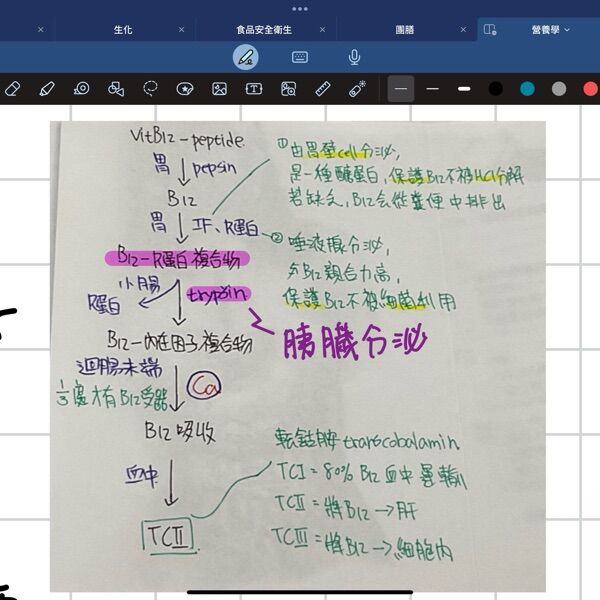 生化
食品安全衛生
團膳
營養學
VitB12-peptide
胃 pepsin
B12
胃 IF、R蛋白
B12-R蛋白複合物
小腸 trypsin
R蛋白
B12-內在因子複合物
迴腸末端
1/3處才有B12受器
Ca
B12吸收
血中
TCII
①由胃壁cell分泌,
是一種醣蛋白,保護B12不被HCl分解
若缺乏,B12會從糞便中排出
②唾液腺分泌,
與B12親合力高,
保護B12不被細菌利用
胰臟分泌
転鈷胺transcobalamin
TCI=80% B12血中運輸
TCII=將B12→肝
TCIII=將B12→細胞內